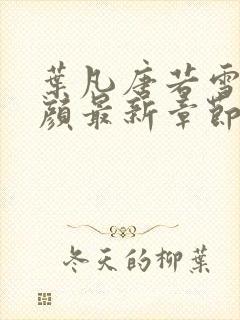 葉凡唐若雪
顏最新章節
冬天的柳葉